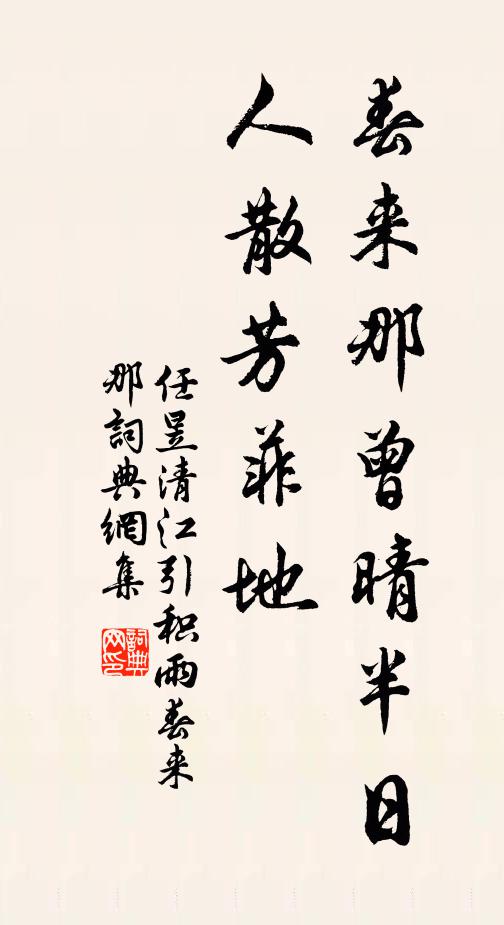 春来那曾晴半日
人散芳菲地
任昱清江引积雨春来
那詞典網集
詞典网印